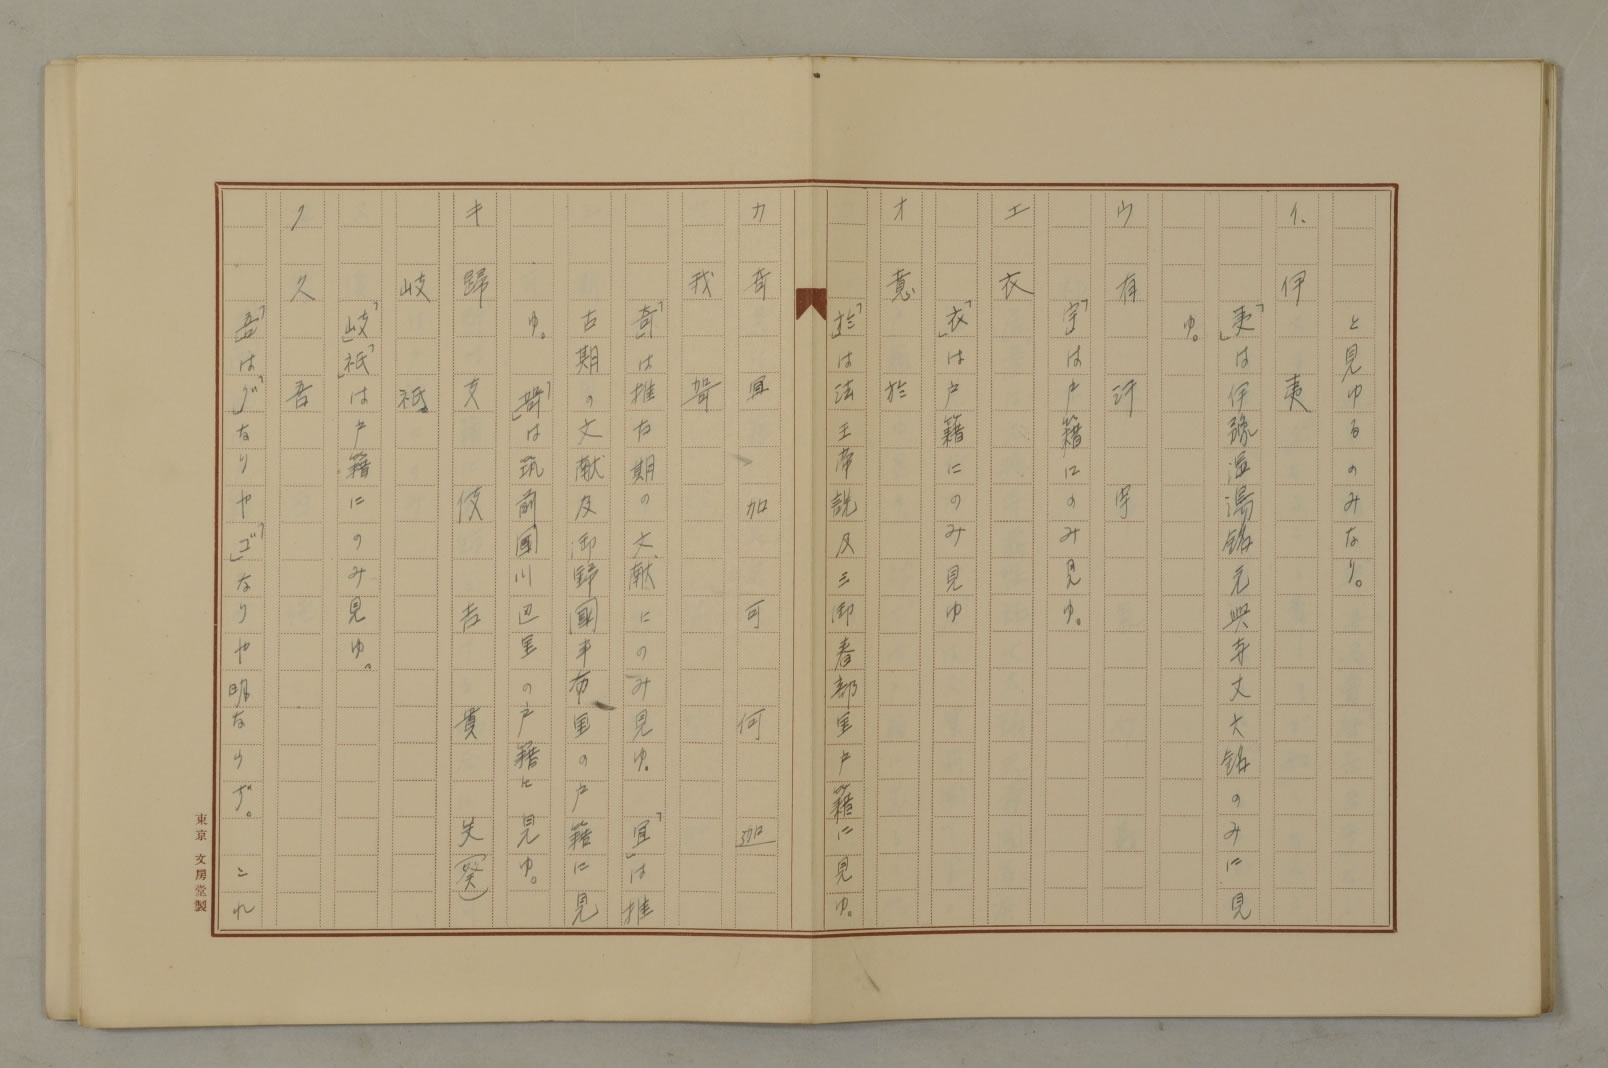 と見ゆるのみなり。
イ 伊 夷
「夷」は伊豫温湯銘元興寺丈六銘のみに見
ゆ。
ウ 有 汙 宇
「宇」は戸籍にのみ見ゆ。
エ 衣
「衣」は戸籍にのみ見ゆ
オ 意 於
「於」は法王帝説及三御春部里戸籍に見ゆ。
カ 奇 宜 加 可 何 迦
我 奇
「奇」は推古期の文献にのみ見ゆ。「宜」は推
古期の文献及御野國半布里の戸籍に見
ゆ。「」は筑前國川辺里の戸籍に見ゆ。
キ 歸 支 伎 吉 貴 癸
岐 祇
「岐」「祇」は戸籍にのみ見ゆ。
ク 久 吾
「吾」は「グ」なりや「ゴ」なりや明ならず。これ
東京 文房堂製